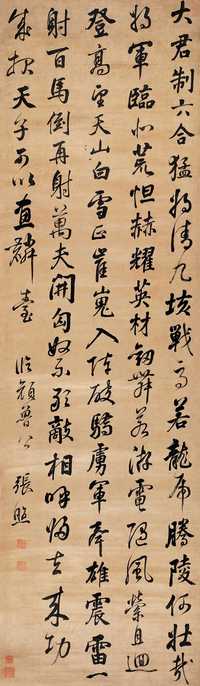 大君制六合猛將清九垓戰馬若龍虎騰陵何壯哉
將軍臨北荒怛赫耀英材劒舞若游電隨風縈且迴
登高望天山白雪正崔嵬入陣破驕虜威聲雄震雷一
射百馬倒再射萬夫開匈奴不敢敵相呼歸去來功
成報天子可以畫麟臺 臨顏魯公 張照